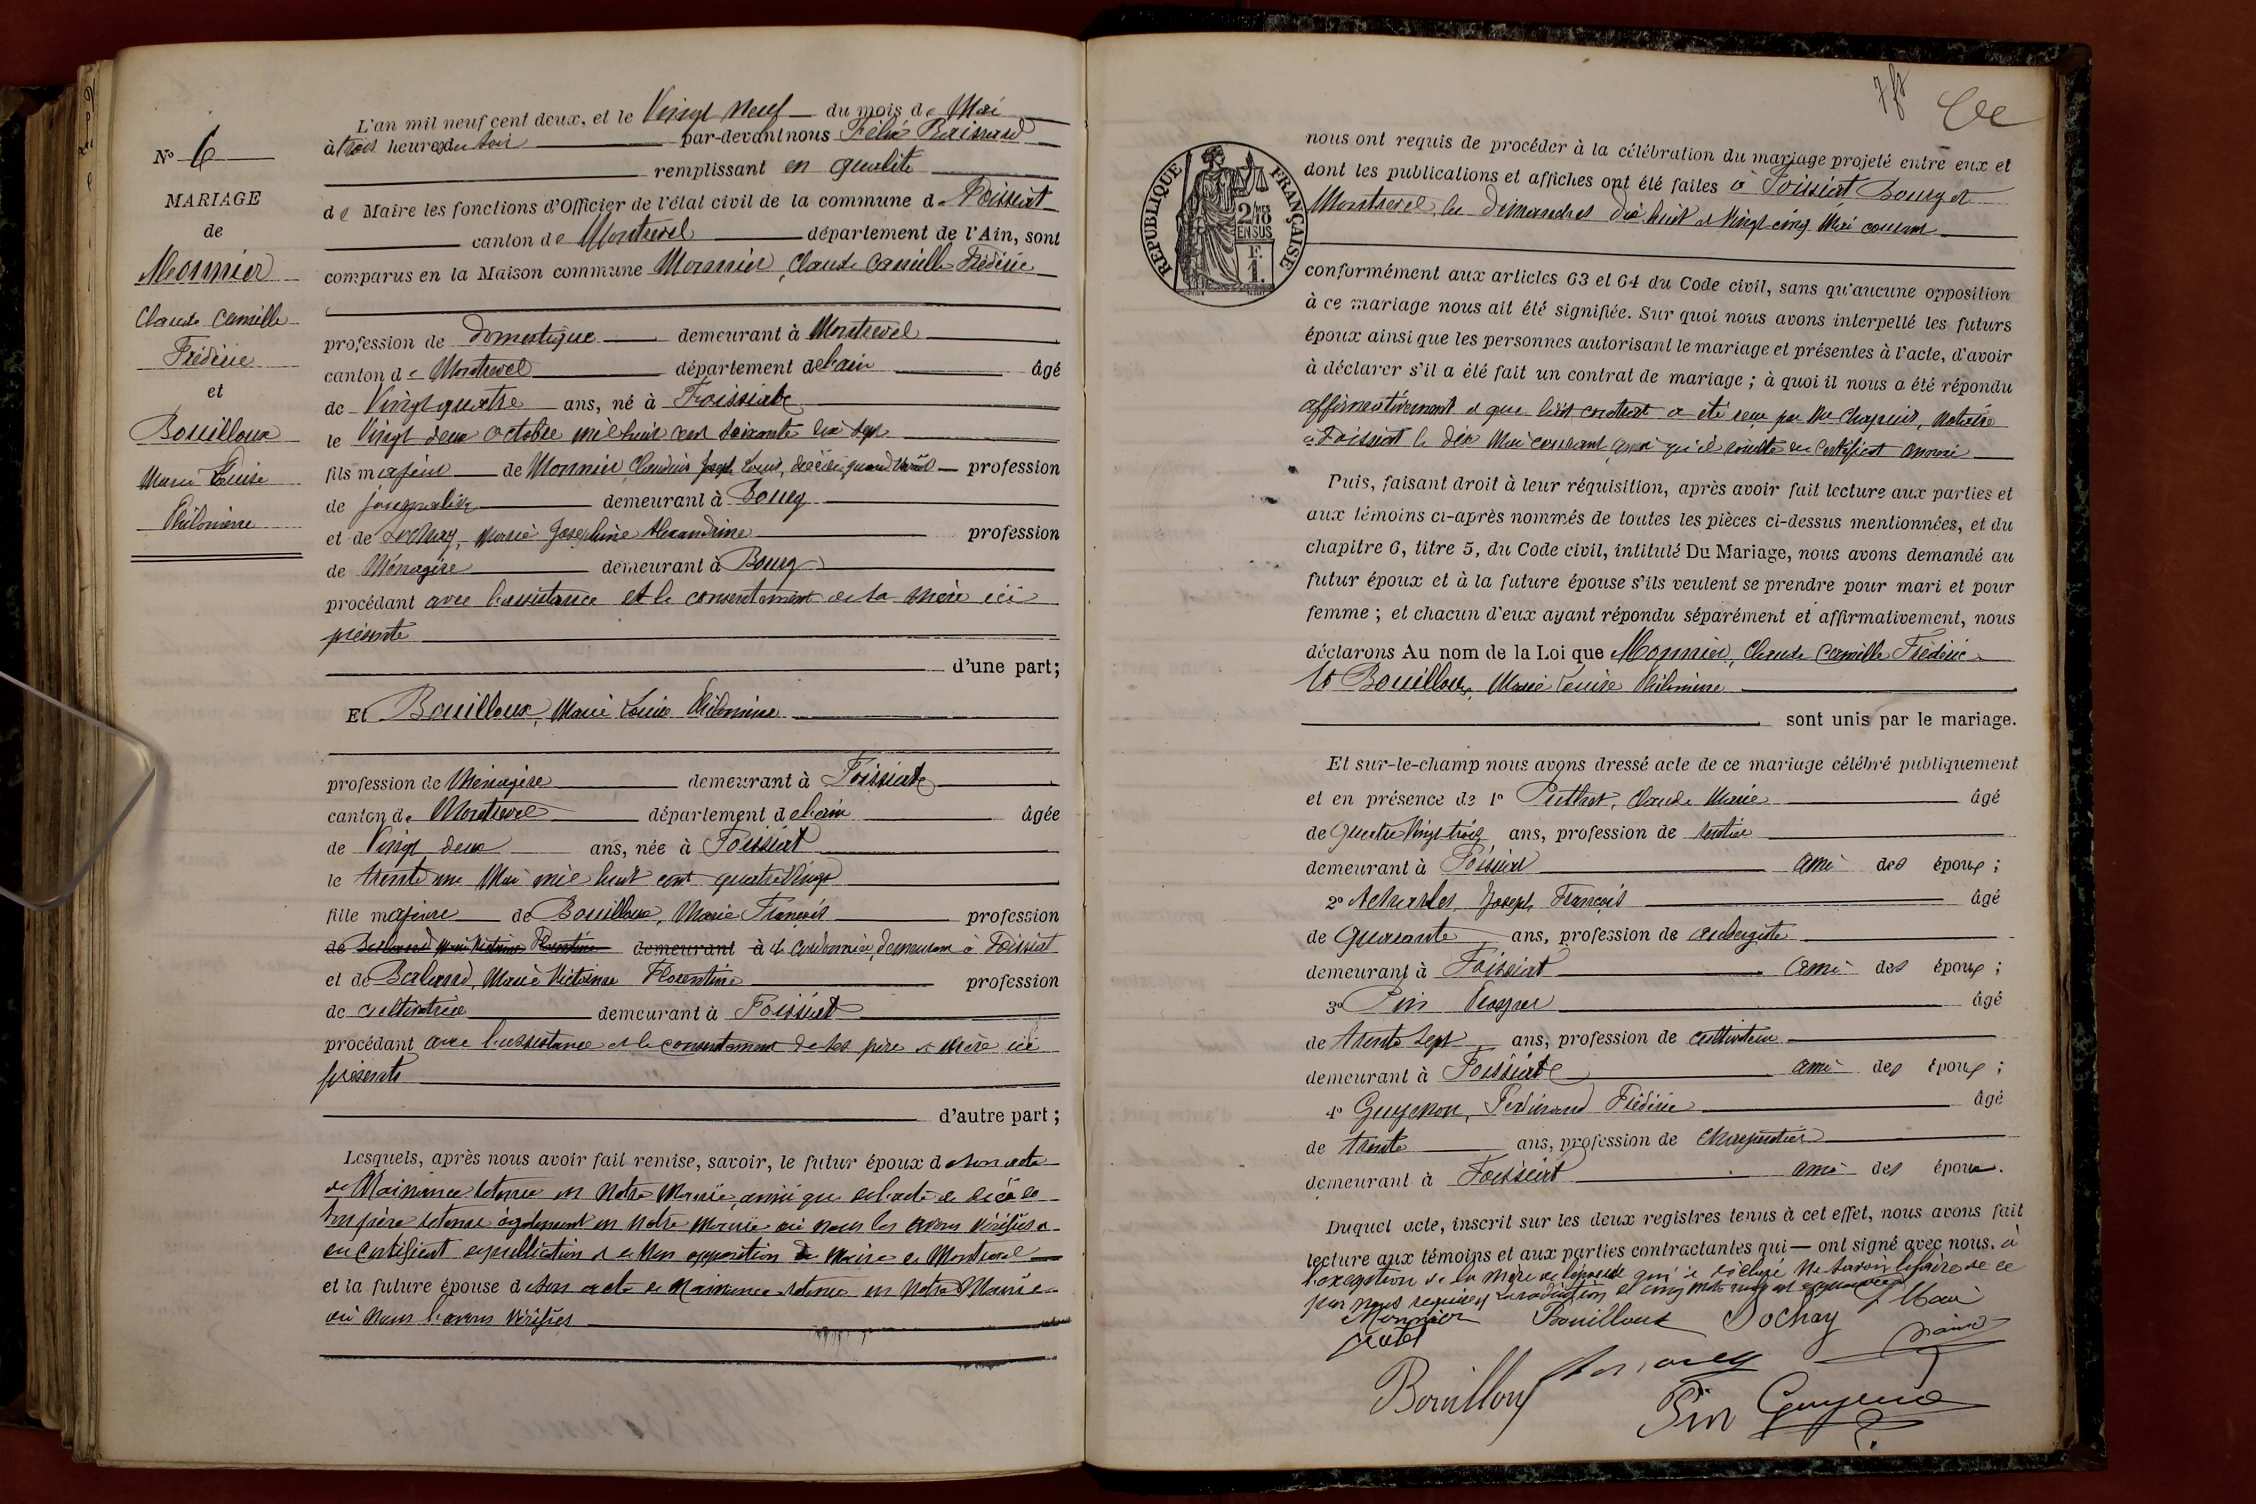 N° 6
MARIAGE
de
Monnier
Claude Camille
Frédéric
et
Bouilloux
Marie Louise
Philomène
L'an mil neuf cent deux, et le Vingt Neuf du mois de Mai
à trois heures du soir par-devant nous Félix
remplissant en qualité
de Maire les fonctions d'Officier de l'état civil de la commune de Foissiat
canton de Montrevel département de l'Ain, sont
comparus en la Maison commune Monnier, Claude Camille Frédéric
profession de domestique demeurant à Montrevel
canton de Montrevel département de l'ain âgé
de Vingt quatre ans, né à Foissiat
le Vingt deux octobre mil huit cent soixante dix sept
fils majeur de Monnier, Claudius Joseph Louis, décédé, quand vivait profession
de journalier demeurant à Bourg
et de Lochay, Marie Joséphine Alexandrine profession
de Ménagère demeurant à Bourg
procédant avec l'assistance et le consentement de sa mère ici
présente
d'une part;
Et Bouilloux, Marie Louise Philomène
profession de Ménagère demeurant à Foissiat
canton de Montrevel département de l'ain âgée
de Vingt deux ans, née à Foissiat
le trente un Mai mil huit cent quatre Vingt
fille majeure de Bouilloux, Marie François profession
de Marie Victorine Florentine demeurant à de cordonnier, demeurant à Foissiat
et de Marie Victorine Florentine profession
de cultivatrice demeurant à Foissiat
procédant avec l'assistance et le consentement de ses père et mère ici
présents
d'autre part;
Lesquels, après nous avoir fait remise, savoir, le futur époux de son acte
de Naissance retenu en Notre Mairie, ainsi que de l'acte de décès de
son père retenu également en Notre Mairie où nous les avons vérifiés et
du certificat de publication et de Non opposition de Maire de Montrevel
et la future épouse de son acte de Naissance retenue en Notre Mairie
où Nous l'avons vérifiés
RÉPUBLIQUE FRANÇAISE
2/10
EN SUS
F.
1.
nous ont requis de procéder à la célébration du mariage projeté entre eux et
dont les publications et affiches ont été faites à Foissiat Bourg et
Montrevel, les dimanches dix huit et Vingt cinq Mai courant
conformément aux articles 63 et 64 du Code civil, sans qu'aucune opposition
à ce mariage nous ait été signifiée. Sur quoi nous avons interpellé les futurs
époux ainsi que les personnes autorisant le mariage et présentes à l'acte, d'avoir
à déclarer s'il a été fait un contrat de mariage; à quoi il nous a été répondu
affirmativement et que ledit contrat a été reçu par Me, Notaire
à Foissiat le dix Mai courant, ainsi qu'il résulte du certificat annexé
Puis, faisant droit à leur réquisition, après avoir fait lecture aux parties et
aux témoins ci-après nommés de toutes les pièces ci-dessus mentionnées, et du
chapitre 6, titre 5, du Code civil, intitulé Du Mariage, nous avons demandé au
futur époux et à la future épouse s'ils veulent se prendre pour mari et pour
femme; et chacun d'eux ayant répondu séparément et affirmativement, nous
déclarons Au nom de la Loi que Monnier, Claude Camille Frédéric
Et Bouilloux, Marie Louise Philomène
sont unis par le mariage.
Et sur-le-champ nous avons dressé acte de ce mariage célébré publiquement
et en présence de 1° Claude Marie âgé
de Quatre Vingt trois ans, profession de rentier
demeurant à Foissiat ami des époux;
2° Joseph François âgé
de Quarante ans, profession de aubergiste
demeurant à Foissiat ami des époux;
3° Pin Prosper âgé
de trente sept ans, profession de cultivateur
demeurant à Foissiat ami des époux;
4° Guyenon, Ferdinand Frédéric âgé
de trente ans, profession de charpentier
demeurant à Foissiat ami des époux.
Duquel acte, inscrit sur les deux registres tenus à cet effet, nous avons fait
lecture aux témoins et aux parties contractantes qui ont signé avec nous, à
l'exception de la mère de l'épouse qui a déclaré Ne savoir le faire de ce
par nous requises La radiation de cinq mots rayés est approuvée
Monnier Bouilloux Lochay
Bouilloux
Pin Guyenon